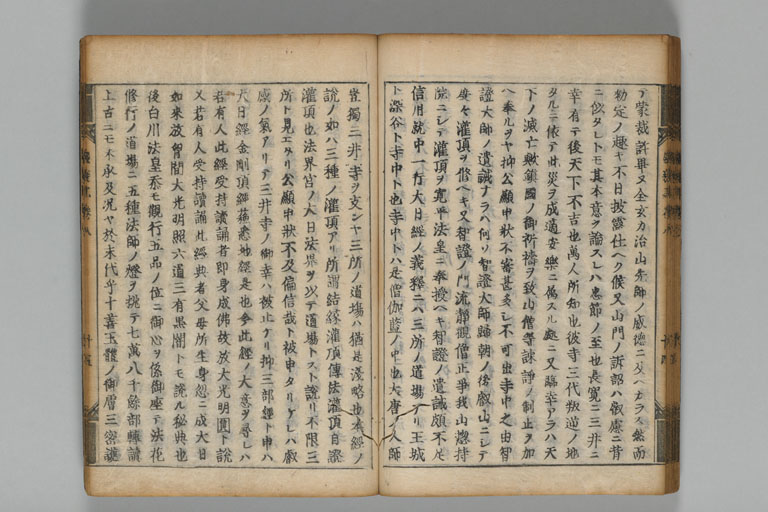 テ蒙裁許畢又全玄カ治山先師ノ威德ニ及ヘカラス然而
勅定ノ趣キ不日披露仕ヘク候又山門ノ訴詔ハ叡慮ニ背
ニ似タレトモ其本意ヲ論スレハ忠節ノ至也長寛ニ三井ニ
幸有テ後天下不吉也萬人所知也彼寺三代叛逆ノ地
タルニ依テ此災ヲ成適安樂ニ属スル處ニ又臨幸アラハ天
下ノ滅亡歟鎮國ノ御祈禱ヲ致山僧等諫諍ノ制止ヲ加
ヘ奉ルヲヤ抑公顯申狀不審甚多シ不可出寺中之由智
證大師ノ遺誡ナラハ何ソ智證大師歸朝ノ後叡山ニシテ
度々灌頂ヲ修ヘキ又智證ノ門流靜觀僧正爭我山惣持
院ニシテ灌頂ヲ寛平法皇ニ奉授ヘキ智證ノ遺誡頗不足
信用就中一行大日經ノ義釋ニハ三所ノ道場アリ王城
ト深谷ト寺中ト也寺中トハ是僧伽藍ノ中也大唐ノ人師
豈獨三井ノ寺ヲ支ンヤ三所ノ道場ハ猶是淺略也本經ノ
說ノ如ハ三種ノ灌頂アリ所謂結緣灌頂傳法灌頂自證
灌頂也法界宮ノ大日法界ヲ以テ道場トスト說リ不限三
所ト見エタリ公顯申狀不及偏信哉ト被申タリケレハ叡
慮ノ氣アリテ三井寺ノ御幸ハ被止ケリ抑三部經ト申ハ
大日經金剛頂經蘇悉地經是也今此經ノ大意ヲ尋レハ
若有人此經受持讀誦者即身成佛故放大光明圓ト說
又若有人受持讀誦此經典者父母所生身忽ニ成大日
如來放眉間大光明照六道三有黒闇トモ說ル秘典也
後白川法皇忝モ觀行五品ノ位ニ御心ヲ係御座テ法花
修行ノ道場ニ五種法師ノ燈ヲ挑テ七萬八千餘部轉讀
上古ニモ未承及況ヤ於末代乎十善玉體ノ御膚三密護